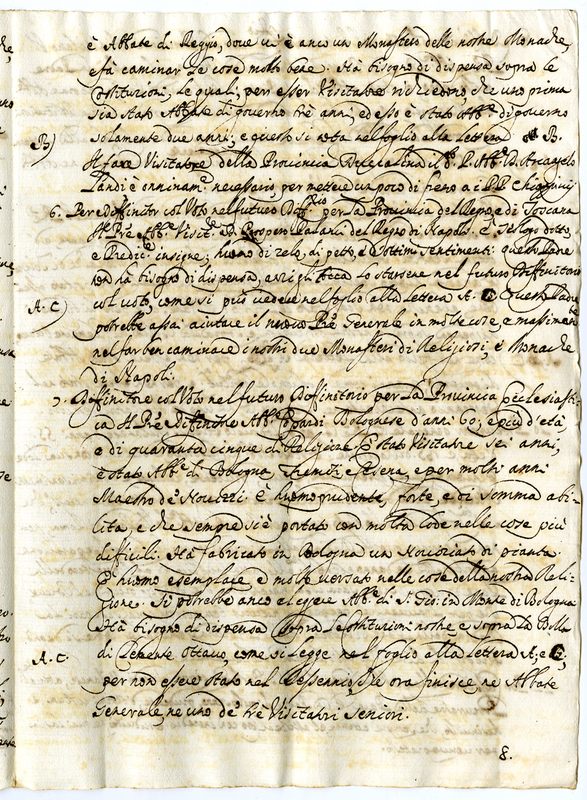 è Abbate di Reggio, dove vi è anco un Monastero delle nostre Monache,
e fà caminar le cose molto bene. Hà bisogno di dispensa sopra le
Costituzioni, le quali, per esser Visitatore richiedono, che uno prima
sia stato Abbate di governo trè anni, ed esso è stato Abb.e di governo
B) solamente due anni; e questo si nota nel foglio alla lettera B.
Il fare Visitatore della Provincia il P. Abb.e D. Arcangelo
Landi è onninam.e necessario, per mettere un poco di freno a i PP.
6. Per Deffinitor col Voto nel futuro Deff.rio per la Provincia del Regno, e di Toscana
Il P.re Abb.e Visit.re D. Prospero del Regno di Napoli. È Teologo dotto,
e Predic.e insigne; huomo di zelo, di petto, e d'ottimi sentimenti: questo Padre
non hà bisogno di dispensa, anzi gli tocca lo star bene nel futuro Deffinitorio
A. C) col voto, come si può vedere nel foglio alla lettera A. C Questo Padre
potrebbe assai aiutare il nuovo P.re Generale in molte cose, e massimamente
nel far ben caminare i nostri due Monasteri di Religiosi, e Monache
di Napoli.
7. Deffinitore col Voto nel futuro Deffinitorio per la Provincia Ecclesiasti-
ca Il P.re Diffinitre Abb.e Bolognese d'anni 60, e più d'età,
e di quaranta cinque di Religione È stato Visitatore sei anni,
è stato Abb.e di Bologna, e Cesena, e per molti anni
Maestro de' Novizzi. È huomo prudente, forte, e di somma abi-
lità, e che sempre si è portato con molta lode nelle cose più
difficili. Hà fabricato in Bologna un Noviziato di pianta.
È huomo esemplare e molto versato nelle cose della nostra Reli-
gione. Si potrebbe anco eleggere Abb.e di S. Gio: in Monte di Bologna
Hà bisogno di dispensa sopra le Costituzioni nostre e sopra la Bolla
A. C. di Clemente Ottavo, come si legge nel foglio alla lettera A, e C,
per non essere stato nel Sessennio, che ora finisce, ne Abbate
Generale, ne uno de' trè Visitatori seniori.
8.